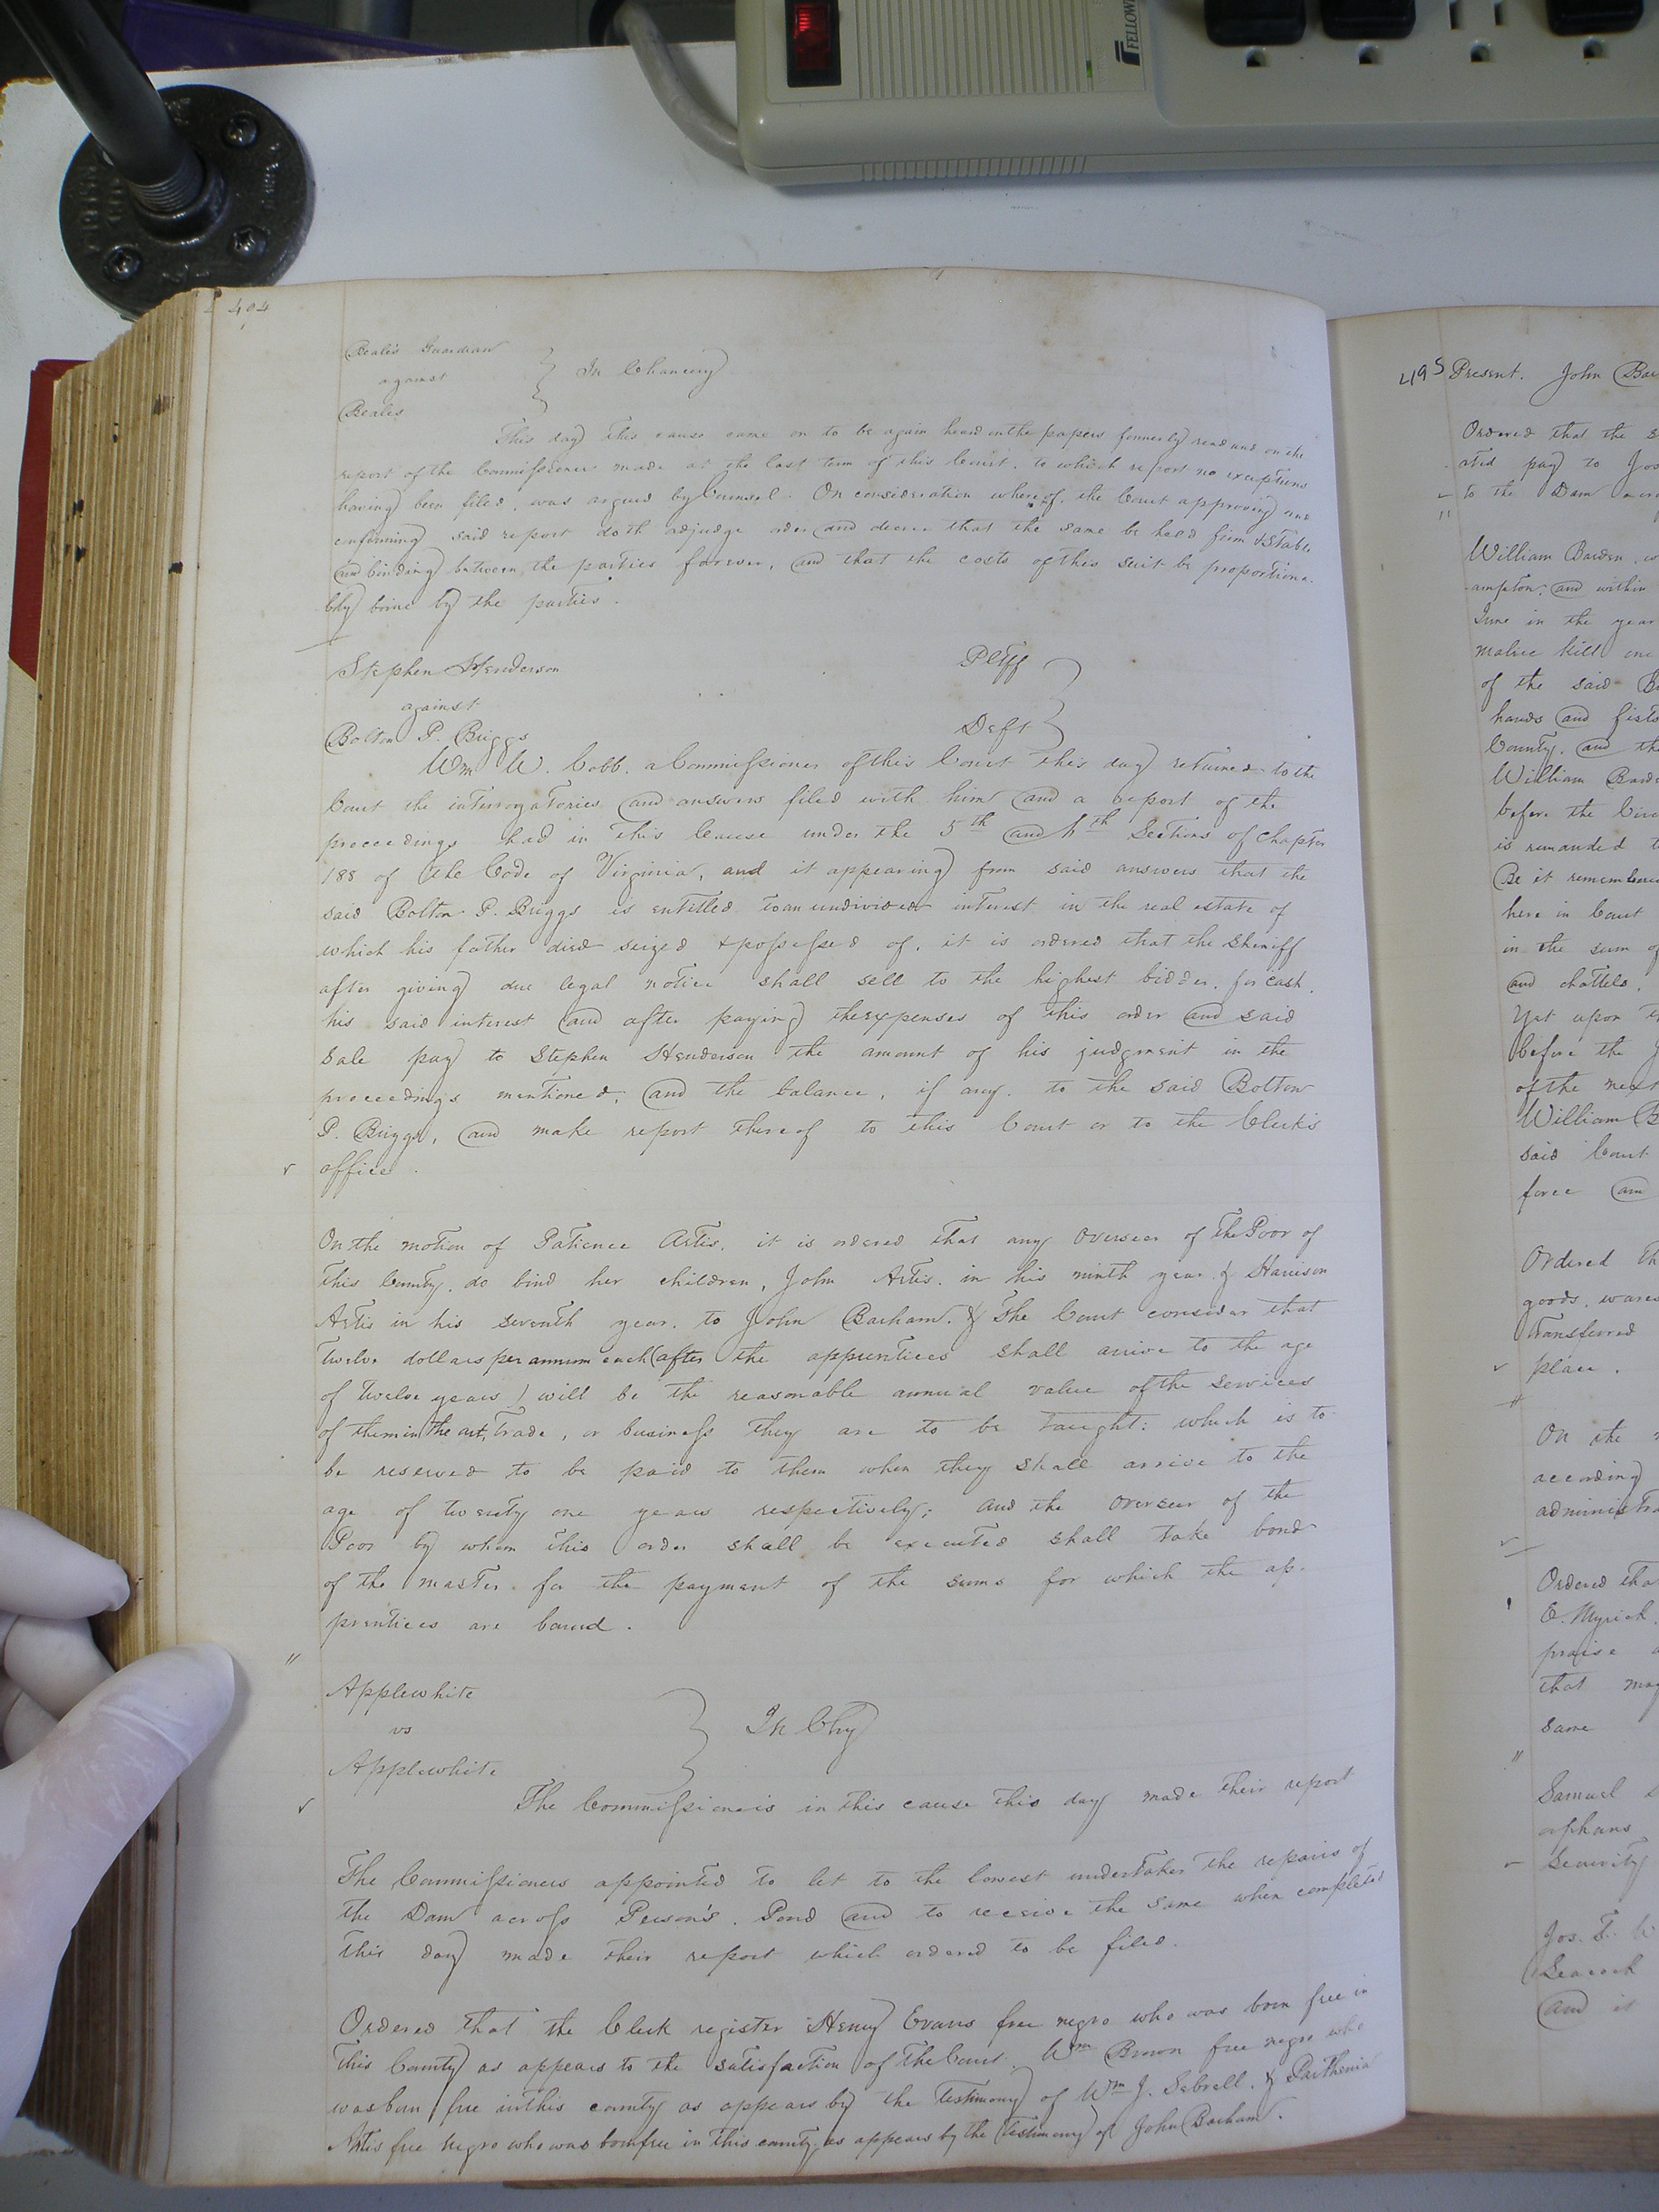 FELLOWE
494
Beale's Guardian
against
Beales
In Chancery
This day this cause came on to be again heard on the papers formerly read and on the
report of the Commissioner made at the last term of this Court, to which report no exceptions
having been filed, was argued by Counsel. On consideration whereof, the Court approving and
confirming said report doth adjudge order and decree that the same be held firm & stable
and binding between the parties forever, and that the costs of this suit be proportiona-
bly borne by the parties.
Stephen Henderson Pltff
against
Bolton P. Briggs Deft
Wm W. Cobb, a Commissioner of this Court this day returned to the
Court the interrogatories and answers filed with him and a report of the
proceedings had in this Cause under the 5th and 6th Sections of Chapter
188 of the Code of Virginia, and it appearing from said answers that the
said Bolton P. Briggs is entitled to an undivided interest in the real estate of
which his father died seized & possessed of, it is ordered that the Sheriff
after giving due legal notice shall sell to the highest bidder, for cash,
his said interest and after paying the expenses of this order and said
Sale pay to Stephen Henderson the amount of his judgment in the
proceedings mentioned, and the balance, if any, to the said Bolton
P. Briggs, and make report thereof to this Court or to the Clerk's
office.
On the motion of Patience Artis, it is ordered that any Overseer of the Poor of
this County, do bind her children, John Artis, in his ninth year & Harrison
Artis in his seventh year, to John Barham. & The Court consider that
Twelve dollars per annum each (after the apprentices shall arrive to the age
of twelve years) will be the reasonable annual value of the services
of them in the art, trade, or business they are to be taught: which is to
be reserved to be paid to them when they shall arrive to the
age of twenty one years respectively; and the Overseer of the
Poor by whom this order shall be executed shall take bond
of the master for the payment of the sums for which the ap-
prentices are bound.
Applewhite
vs
Applewhite
In Chy
The Commissioners in this cause this day made their report
The Commissioners appointed to let to the lowest undertaker the repairs of
the Dam across Person's Pond and to receive the same when completed
this day made their report which ordered to be filed.
Ordered that the Clerk register Henry Evans free negro who was born free in
this County as appears to the satisfaction of the Court. Wm Brown free negro who
was born free in this county as appears by the testimony of Wm J. Sebrell. & Parthenia
Artis free negro who was born free in this county, as appears by the testimony of John Barham.
495 Present. John Bar
Ordered that the s
ated pay to Jos
to the Dam acro
William Barden, w
ampton, and within
June in the year
malice kill one
of the said B
hands and fists
County, and the
William Bard
before the Circ
is remanded t
Be it remembere
here in Court
in the sum of
and chattels,
Yet upon th
before the J
of the next
William B
said Court
force and
Ordered th
goods, wares
transferred
place.
On the m
according
administra
Ordered tha
E. Myrick
praise
that may
same
Samuel
orphans
Security
Jos. T. W
Seacock
and it